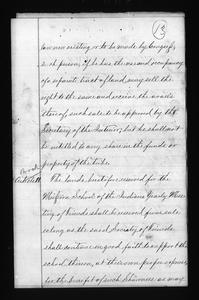 13
law now existing or to be made by Congress,
such person, if he has the use and occupancy
of a separate tract of land, may sell the
right to the same and receive the avails
thereof, such sale to be approved by the
Secretary of the Interior; but he shall not
be entitled to any share in the funds or
property of the tribe.
Article 11
The lands heretofore reserved for the
Mission School of the Indiana Yearly Meeting
of Friends shall be reserved from sale
so long as the said Society of Friends
shall continue in good faith to support the
school thereon, at their own proper expense,
for the benefit of such Shawnees as may